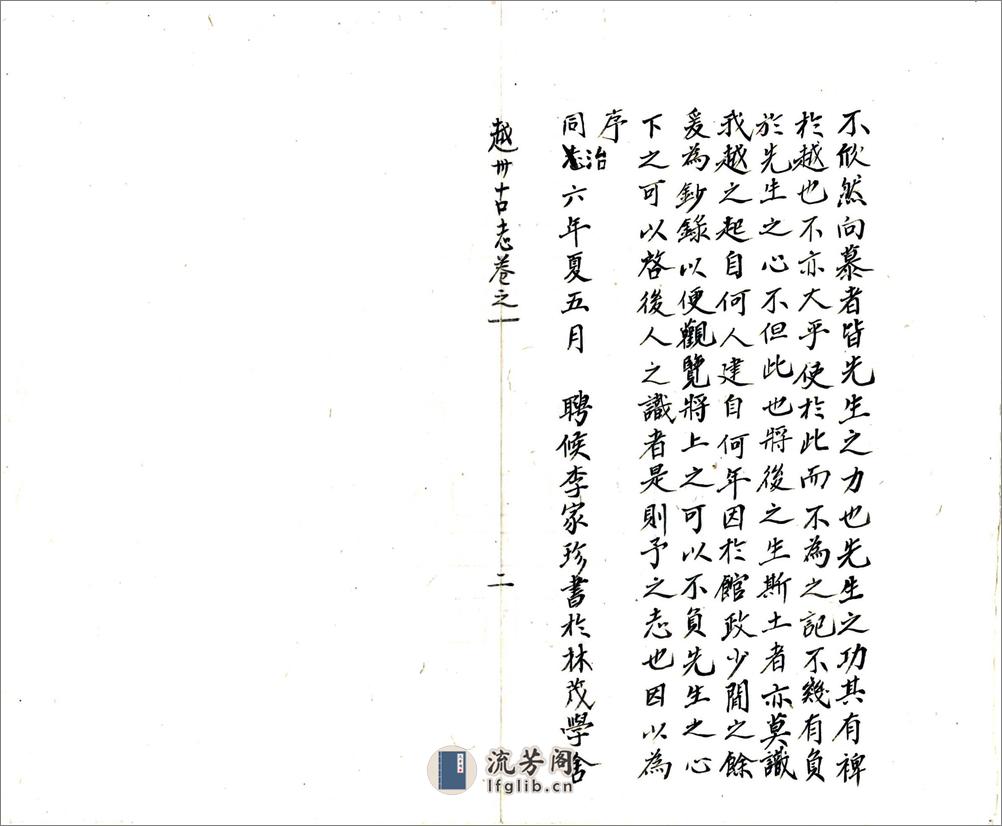 不欣然向慕者皆先生之力也先生之功其有裨
於越也不亦大乎使於此而不為之記不幾有負
於先生之心不但此也將後之生斯土者亦莫識
我越之起自何人建自何年因於館政少閒之餘
爰為鈔錄以便觀覽將上之可以不負先生之心
下之可以啓後人之識者是則予之志也因以為
序
同治六年夏五月 聘候李家珍書於林茂學舍
越州古志卷之一
二
流芳阁
lfglib.cn